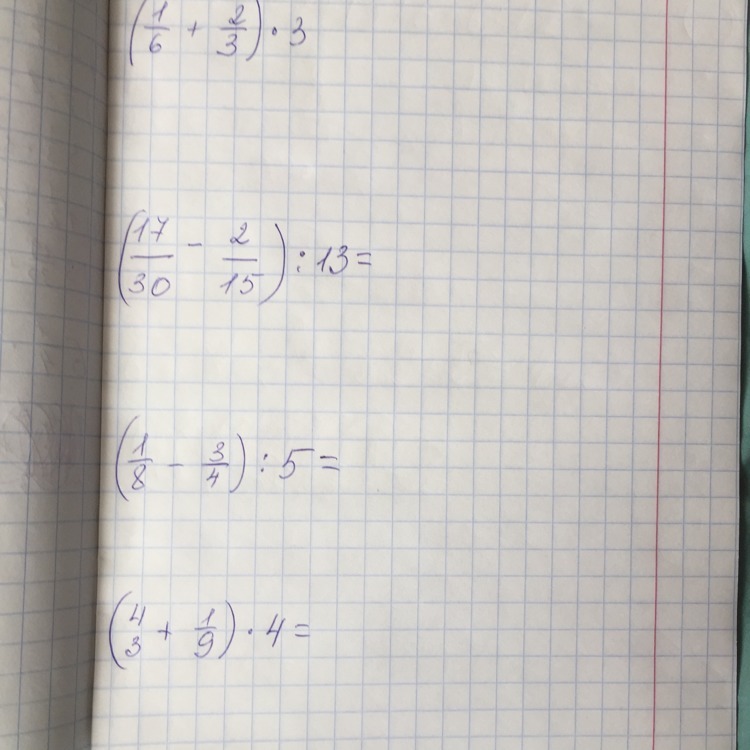 (1/6 + 2/3) · 3
(17/30 - 2/15) : 13 =
(1/8 - 3/4) : 5 =
(4/3 + 1/9) · 4 =